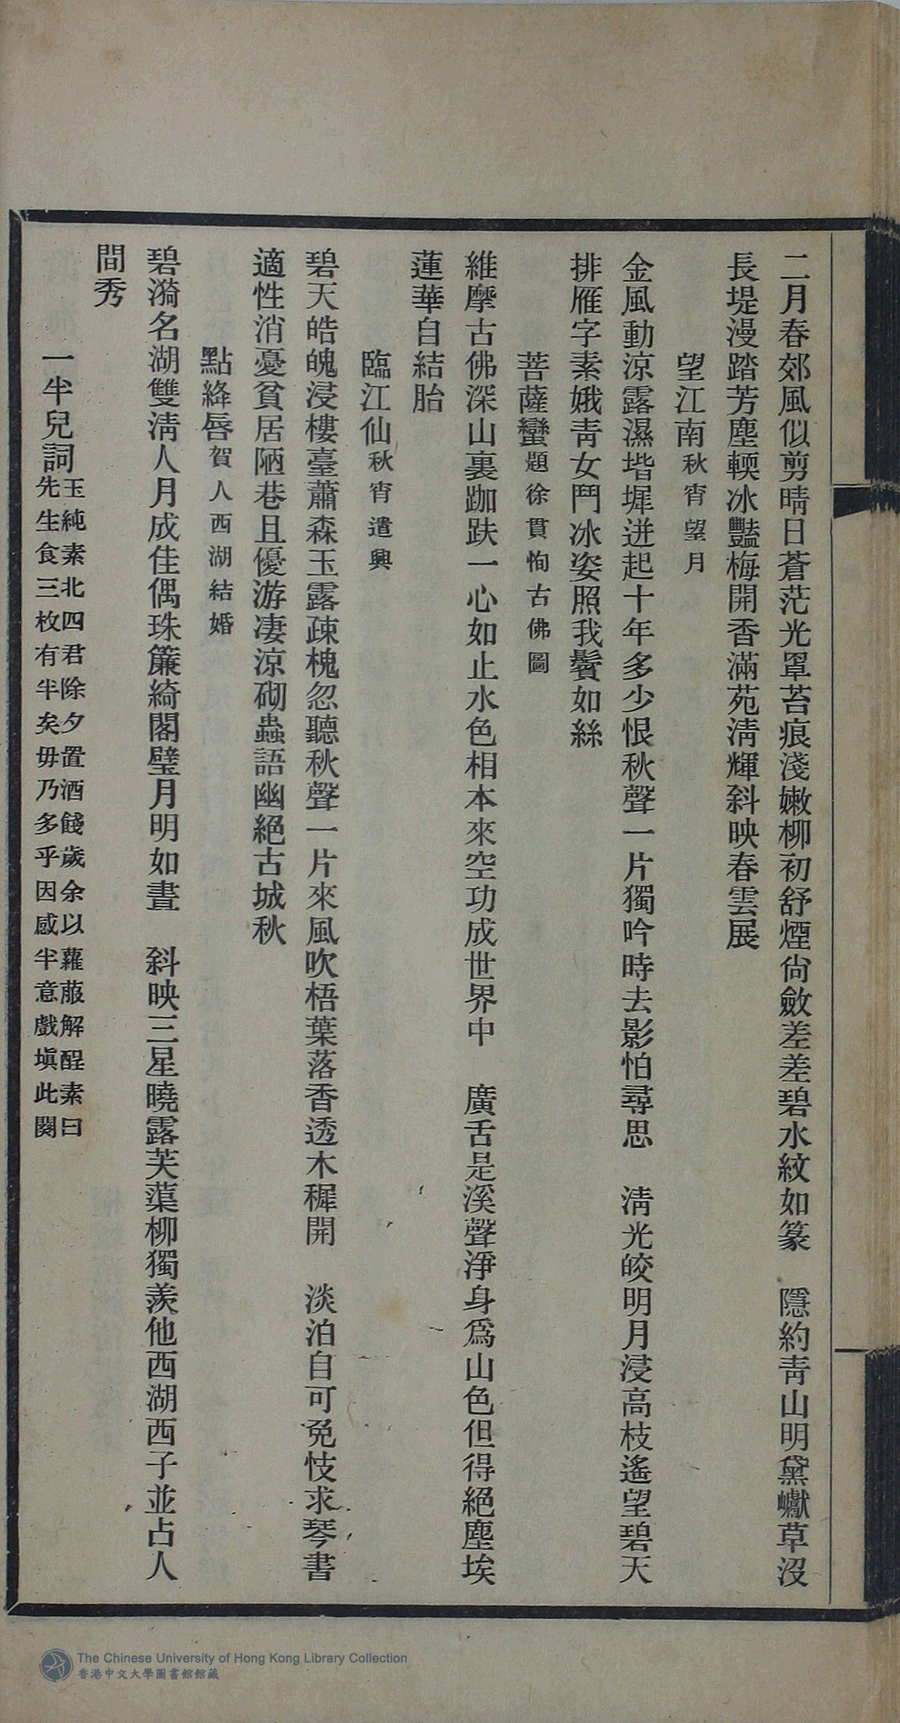 二月春郊風似剪晴日蒼茫光罩苔痕淺嫩柳初舒煙尙斂差差碧水紋如篆　隱約靑山明黛巘草沒
長堤漫踏芳塵輭冰豔梅開香滿苑淸輝斜映春雲展
望江南秋宵望月
金風動涼露濕堦墀迸起十年多少恨秋聲一片獨吟時去影怕尋思　淸光皎明月浸高枝遙望碧天
排雁字素娥靑女鬥冰姿照我鬢如絲
菩薩蠻題徐貫恂古佛圖
維摩古佛深山裏跏趺一心如止水色相本來空功成世界中　廣舌是溪聲淨身爲山色但得絕塵埃
蓮華自結胎
臨江仙秋宵遣興
碧天皓魄浸樓臺蕭森玉露疎槐忽聽秋聲一片來風吹梧葉落香透木穉開　淡泊自可免忮求琴書
適性消憂貧居陋巷且優游凄涼砌蟲語幽絕古城秋
點絳唇賀人西湖結婚
碧漪名湖雙淸人月成佳偶珠簾綺閣璧月明如晝　斜映三星曉露芙蕖柳獨羨他西湖西子並占人
間秀
一半兒詞玉純素北四君除夕置酒餞歲余以蘿菔解酲素曰
先生食三枚有半矣毋乃多乎因感半意戲塡此闋
The Chinese University of Hong Kong Library Collection
香港中文大學圖書館館藏